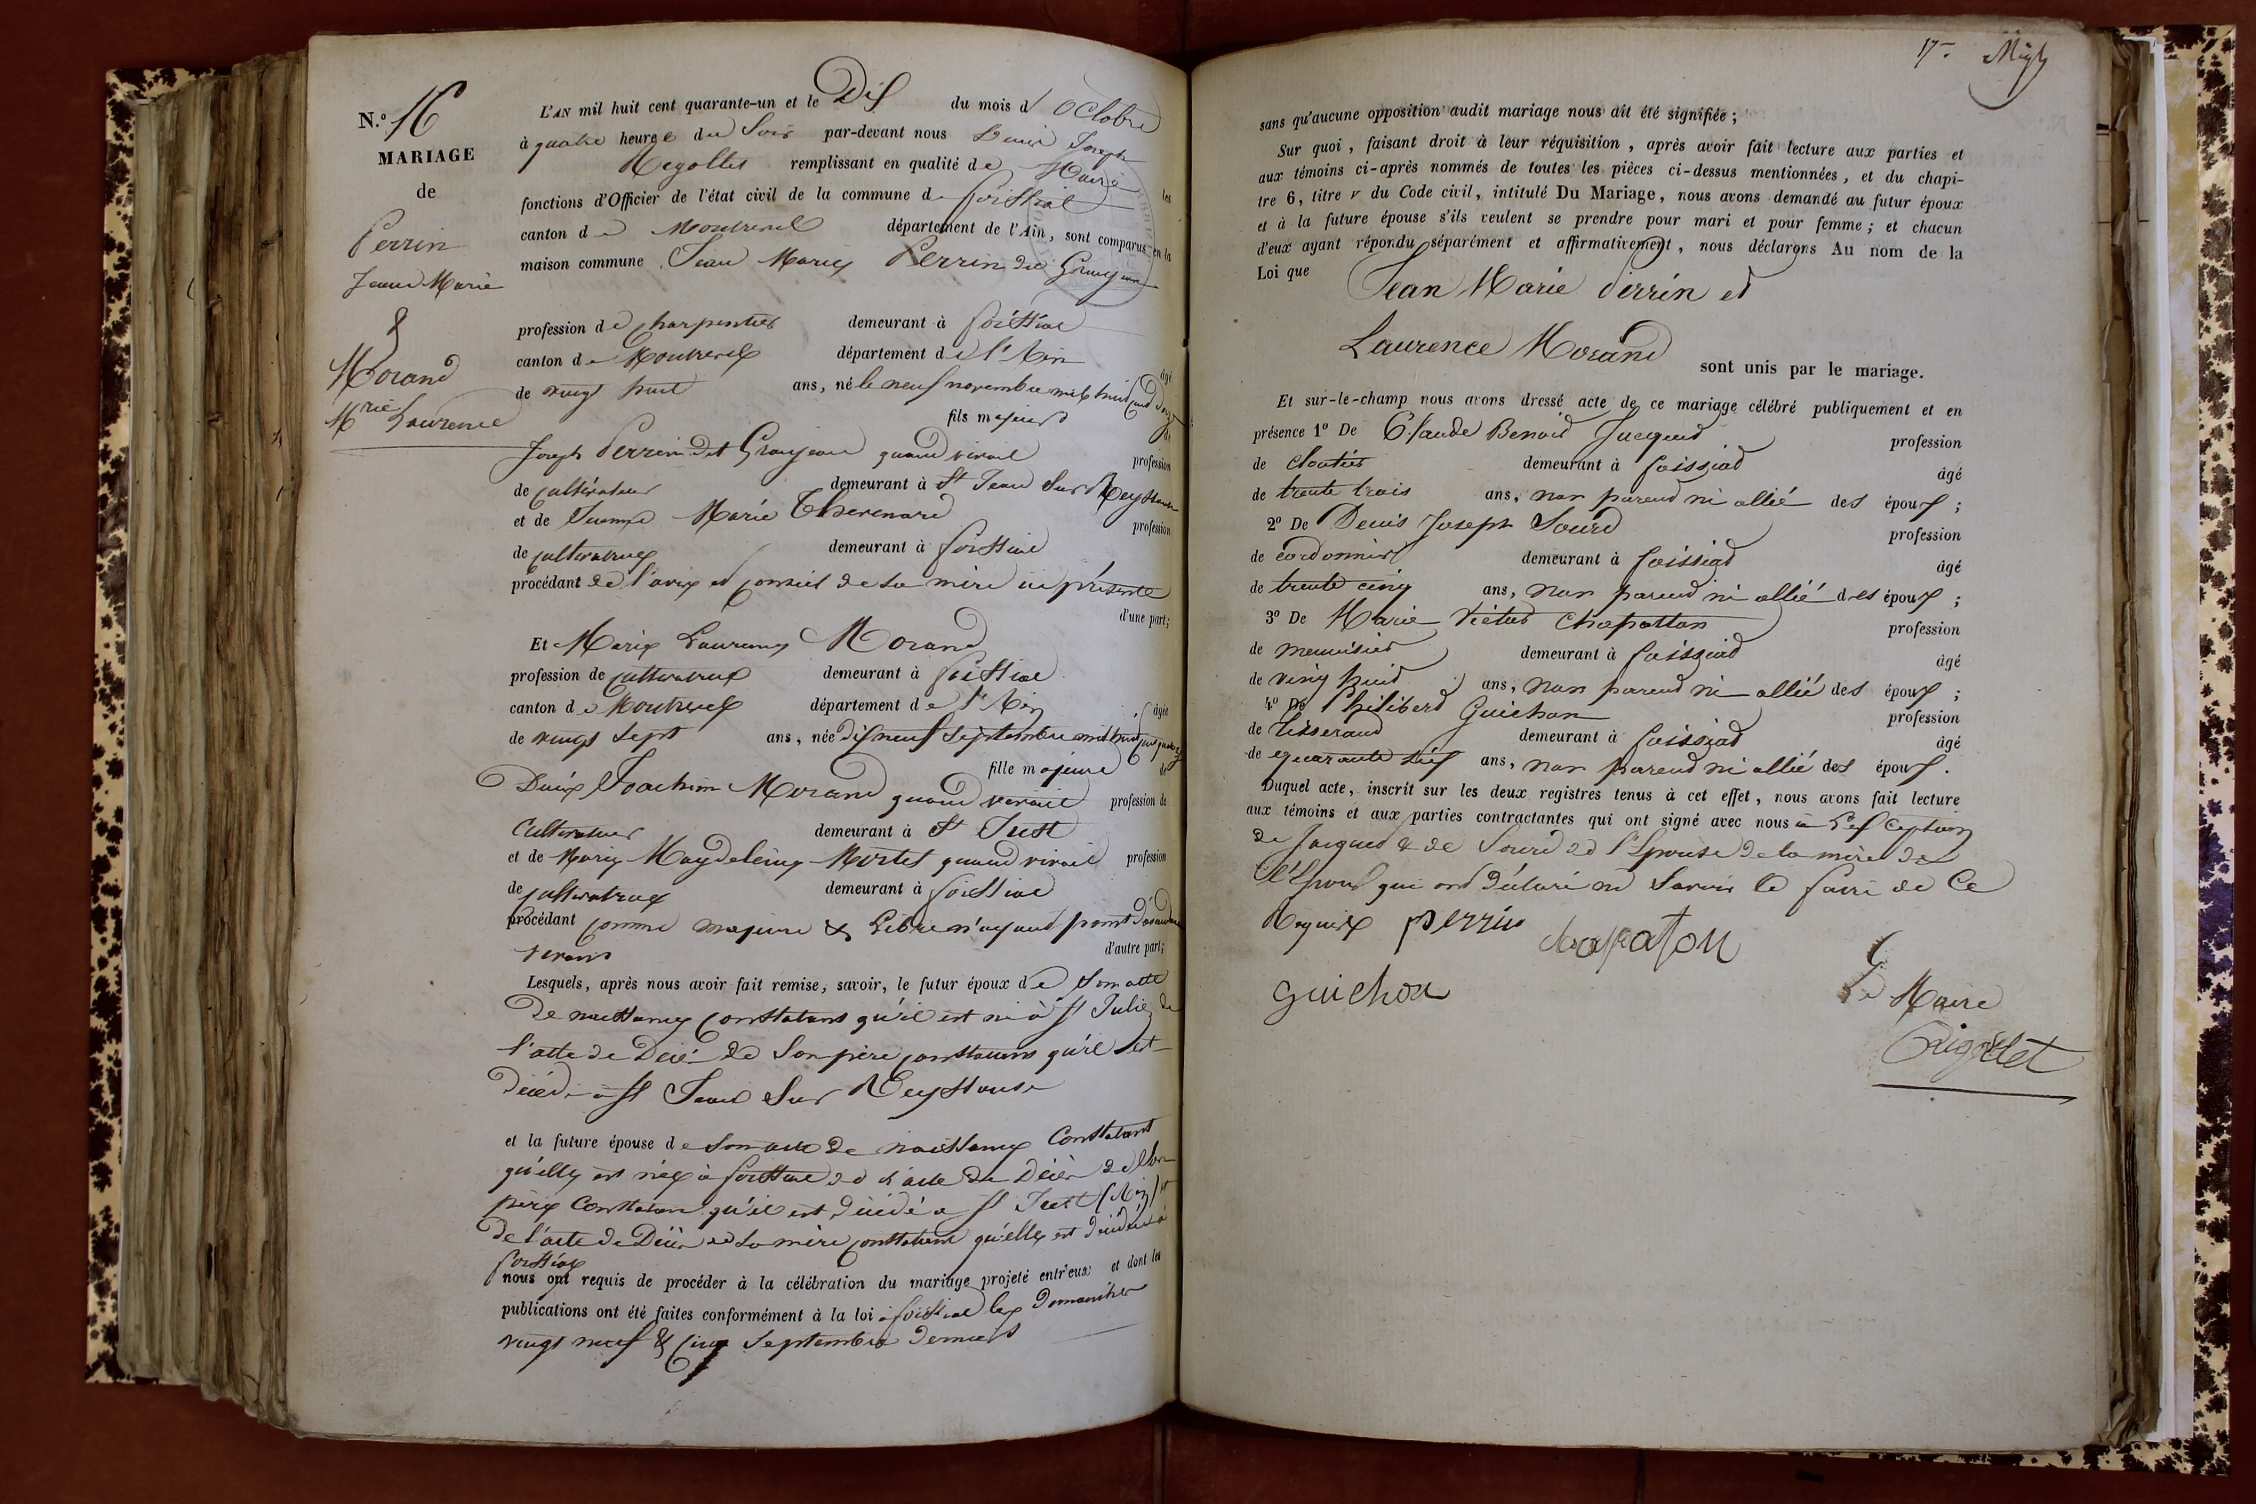 N.º 16
MARIAGE
de
Perrin
Jean Marie
&
Morand
Mrie Laurence
L'AN mil huit cent quarante-un et le Dix du mois d'Octobre
à quatre heures du Soir par-devant nous Denis Joseph
Rigollet remplissant en qualité de Maire les
fonctions d'Officier de l'état civil de la commune de foissiat
canton de Montrevel département de l'Ain, sont comparus en la
maison commune Jean Marie Perrin dit Granjean
profession de charpentier demeurant à foissiat
canton de Montrevel département de l'Ain âgé
de vingt huit ans, né le neuf novembre mil huit cent douze
fils majeur de
Joseph Perrin dit Granjean quand vivait profession
de cultivateur demeurant à St Jean Sur Reyssouze
et de Jeanne Marie Thevenard profession
de cultivatrice demeurant à foissiat
procédant de l'avis et conseil de sa mère ici présente
d'une part;
Et Marie Laurence Morand
profession de cultivatrice demeurant à foissiat
canton de Montrevel département de l'Ain âgée
de vingt sept ans, née dix neuf Septembre mil huit cent quatorze
fille majeure de
Joachim Morand quand vivait profession de
Cultivateur demeurant à St Just
et de Marie Magdeleine Mortel quand vivait profession
de cultivatrice demeurant à foissiat
procédant comme majeure & Libre n'ayant point d'ascendans
vivans d'autre part;
Lesquels, après nous avoir fait remise, savoir, le futur époux de Son acte
de naissance constatant qu'il est né à St Julien de
l'acte de décé de Son père constatant qu'il est
décédé à St Jean Sur Reyssouse
et la future épouse de son acte de naissance Constatant
qu'elle est née à foissiat et l'acte de Décès de Son
père Constatant qu'il est décédé à St Just (Ain) et
de l'acte de Décès de sa mère constatant qu'elle est décédée à
foissiat
nous ont requis de procéder à la célébration du mariage projeté entr'eux et dont les
publications ont été faites conformément à la loi à foissiat les Dimanches
vingt neuf & Cinq Septembre derniers
17-
sans qu'aucune opposition audit mariage nous ait été signifiée;
Sur quoi, faisant droit à leur réquisition, après avoir fait lecture aux parties et
aux témoins ci-après nommés de toutes les pièces ci-dessus mentionnées, et du chapi-
tre 6, titre v du Code civil, intitulé Du Mariage, nous avons demandé au futur époux
et à la future épouse s'ils veulent se prendre pour mari et pour femme; et chacun
d'eux ayant répondu séparément et affirmativement, nous déclarons Au nom de la
Loi que Jean Marie Perrin et
Laurence Morand
sont unis par le mariage.
Et sur-le-champ nous avons dressé acte de ce mariage célébré publiquement et en
présence 1º De Claude Benoit Jacquet profession
de cloutier demeurant à foissiat âgé
de trente trois ans, non parend ni allié des époux;
2º De Denis Joseph Sourd profession
de cordonnier demeurant à foissiat âgé
de trente cinq ans, non parend ni allié des époux;
3º De Marie Victor Chapatton profession
de menuisier demeurant à foissiat âgé
de ving huit ans, non parend ni allié des époux;
4º De Philiberd Guichon profession
de tisserand demeurant à foissiat âgé
de quarante six ans, non parend ni allié des époux.
Duquel acte, inscrit sur les deux registres tenus à cet effet, nous avons fait lecture
aux témoins et aux parties contractantes qui ont signé avec nous à l'exception
de Jacquet & de Sourd et l'Epouse de la mère de
l'Epoux qui ont déclaré ne Savoir le faire de Ce
Requis Perrin
chapaton
guichon
Le Maire
Rigollet